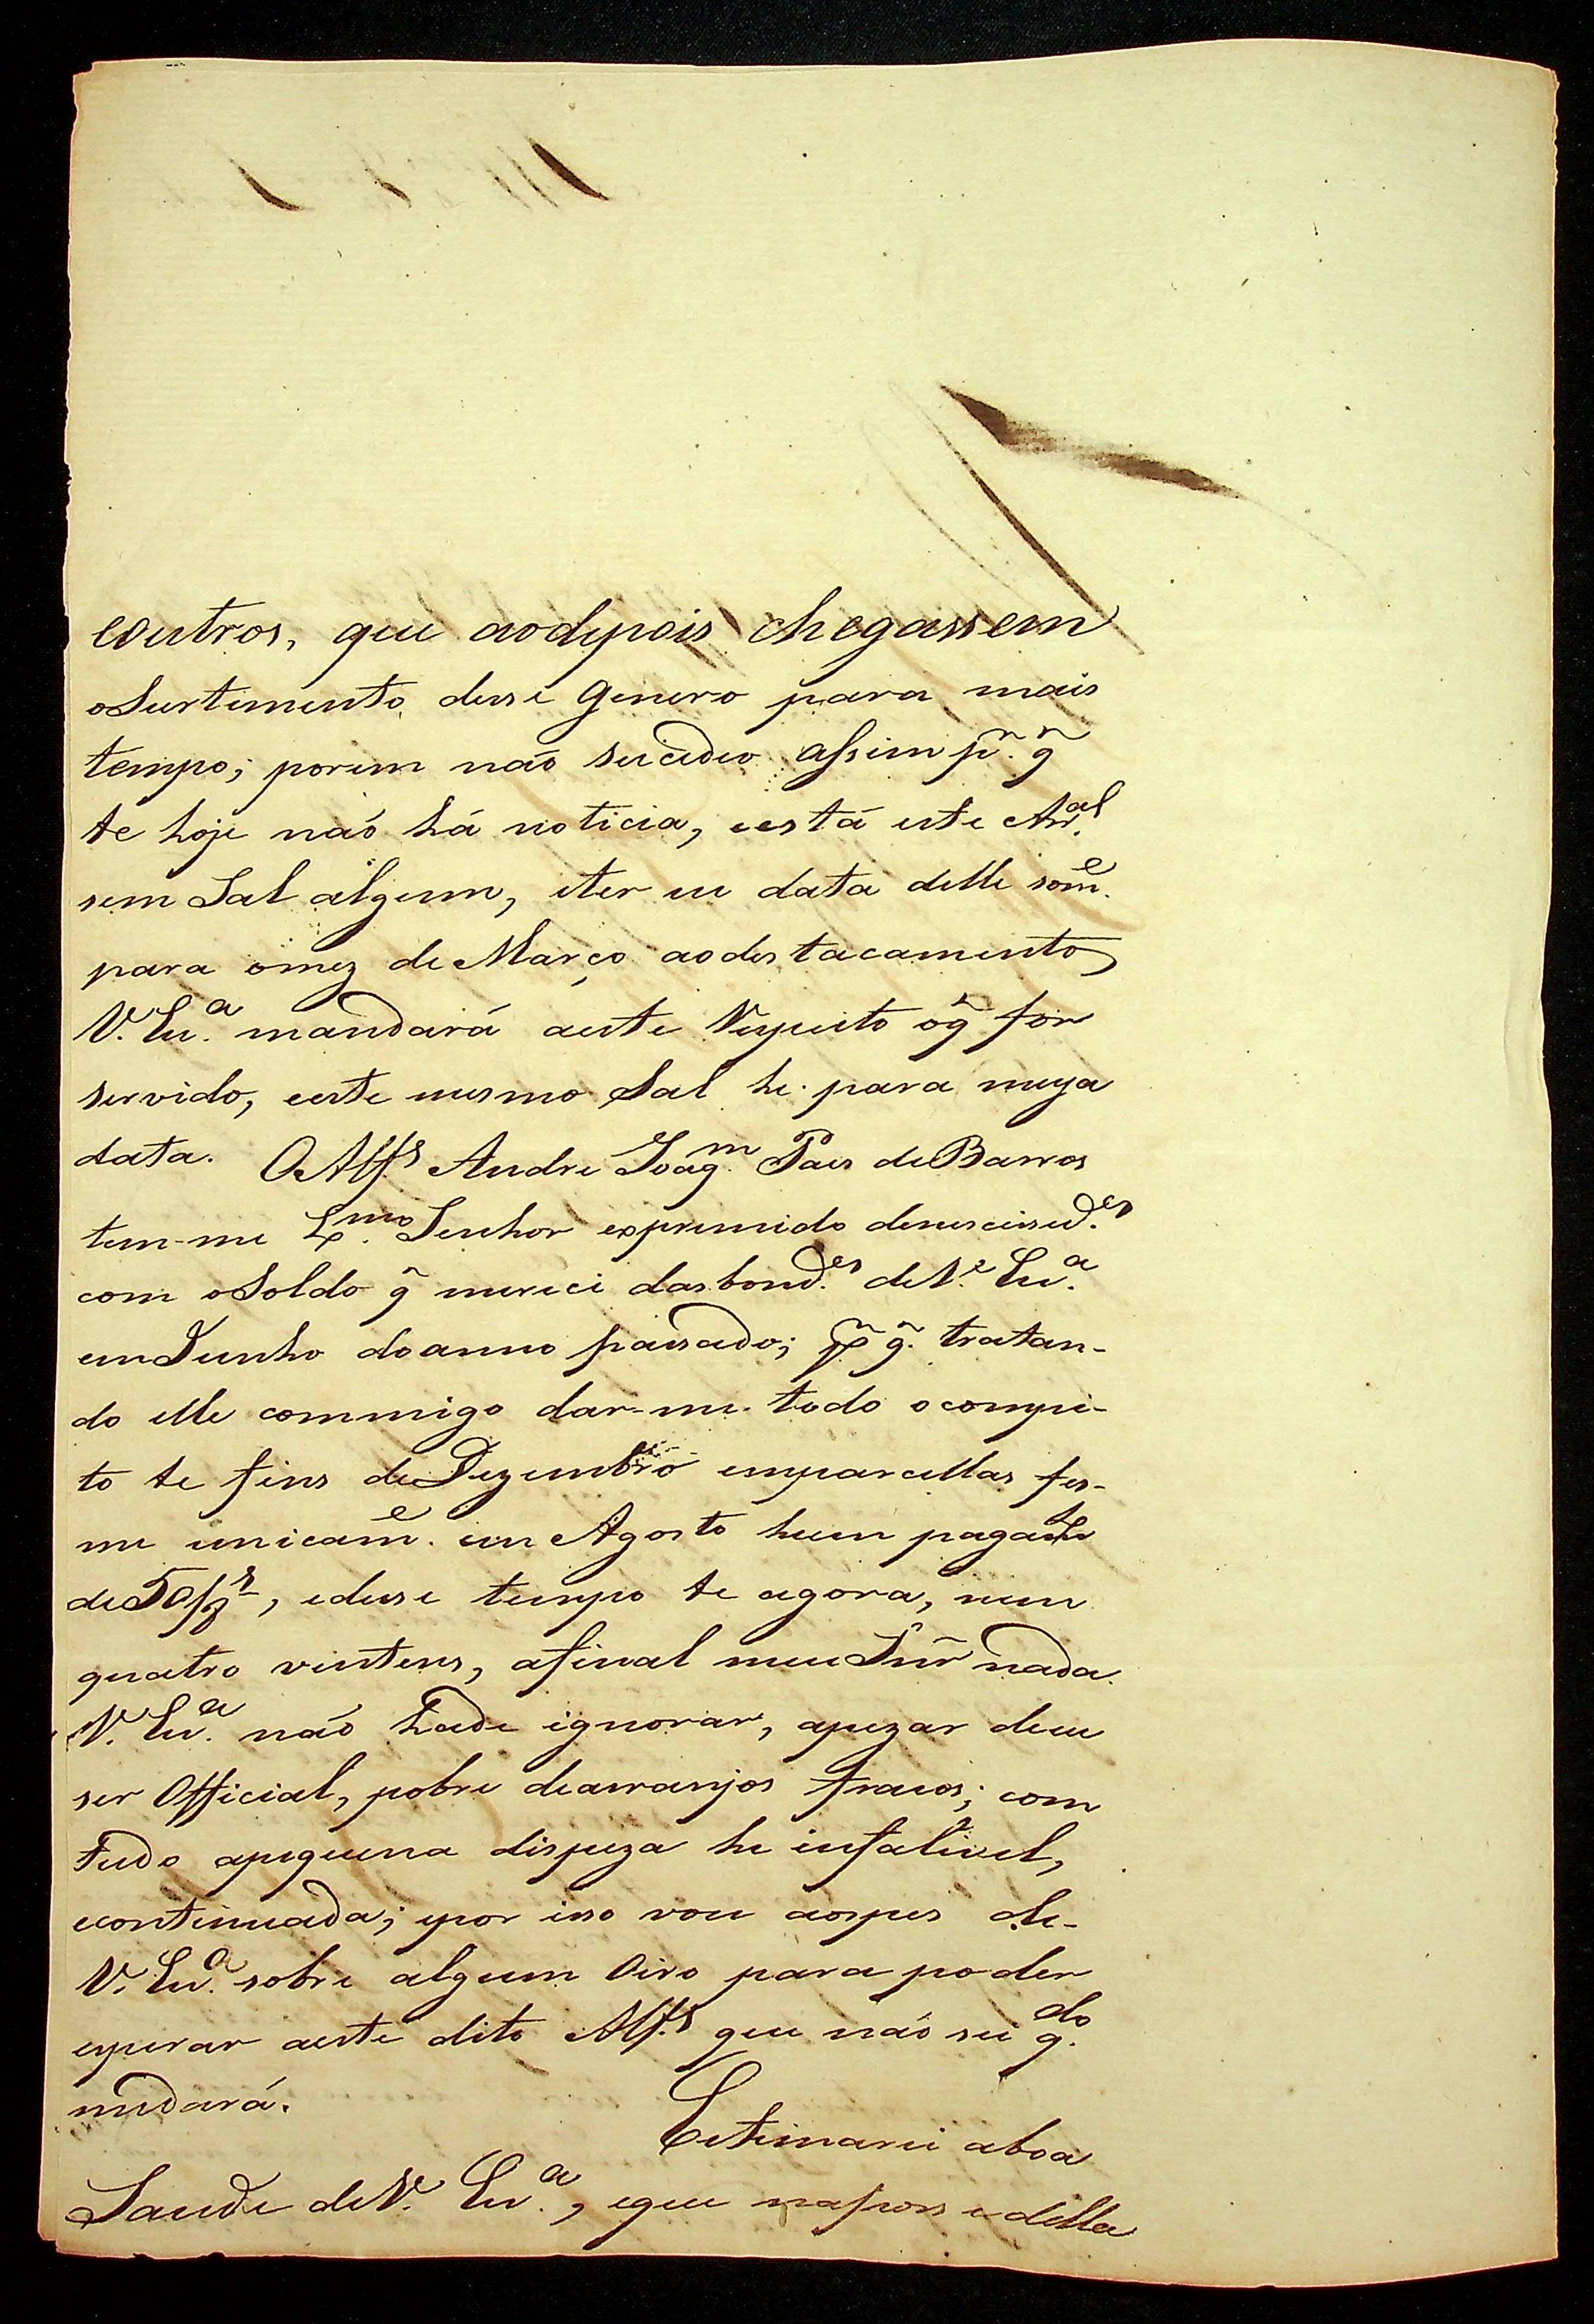 eoutros, que aodepois chegassem
oSurtimento desse Genero para mais
tempo; porem não sucedeo assim pr. q̃
te hoje não há noticia, eestá este Arral.
sem Sal algum, eter eu data delle some.
para omez de Março aodestacamento
V. Exa. mandará aeste Respeito oq̃ for
servido, eeste mesmo Sal he para meya
data. OAlfs. Andre Joaqm. Paes de Barros
tem-me Exmo. Senhor exprimido denesecidd.es
com oSoldo q̃ mereci dasbondd.es deV.e Exa.
emJunho doanno passado; p̃ q̃. tratan-
do elle commigo dar-me todo ocompu-
to te fins deDezembro emparcellas fes-
me unicame. em Agosto hum pagamto
de50/8s, edese tempo te agora, nem
quatro vintens, afinal meuSnr̃ nada.
V. Exa. não hade ignorar, apezar deeu
ser Official, pobre dearranjos fracos; com
tudo apequena dispeza he infalivel,
econtinuada; epor isso vou aospes de-
V. Exa. sobre algum Oiro para poder
esperar aeste dito Alfs. que não sei qdo.
medará.
Estimarei aboa
Saude deV. Exa., eque naposse della